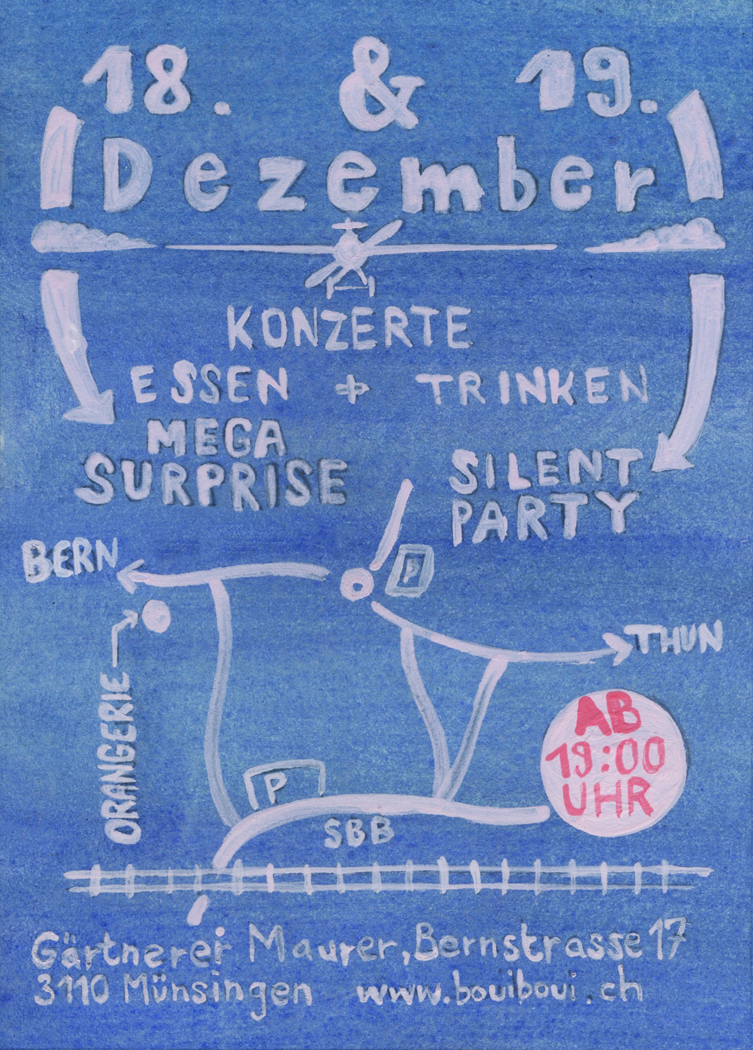 18. & 19.
Dezember
KONZERTE
ESSEN + TRINKEN
MEGA
SURPRISE
SILENT
PARTY
BERN
P
THUN
ORANGERIE
AB
19:00
UHR
P
SBB
Gärtnerei Maurer, Bernstrasse 17
3110 Münsingen www.bouiboui.ch